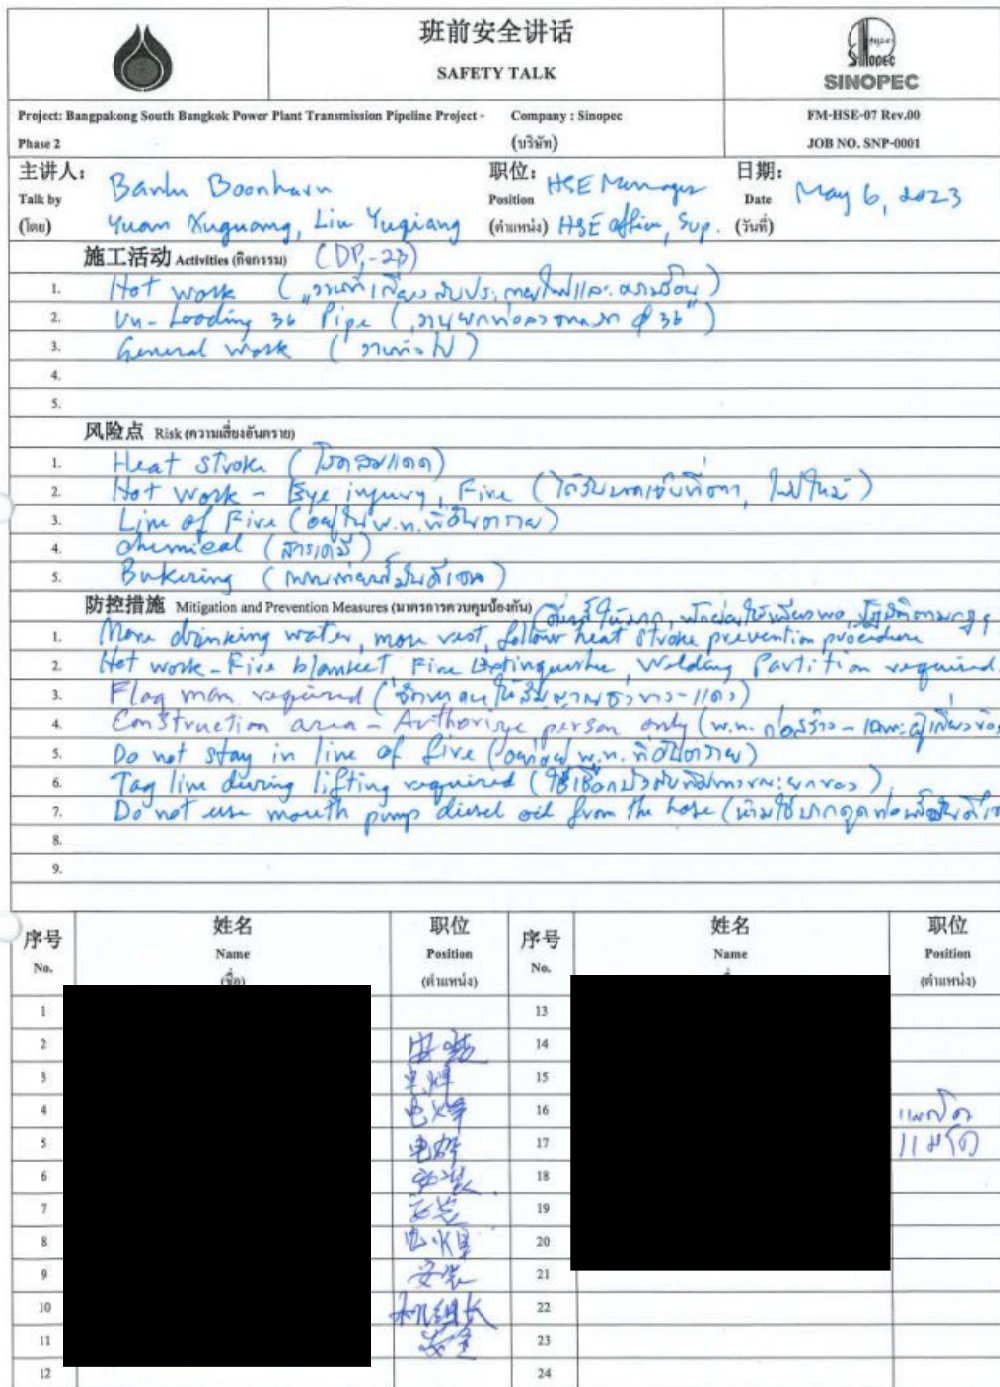 班前安全讲话
SAFETY TALK
SINOPEC
SINOPEC
Project: Bangpakong South Bangkok Power Plant Transmission Pipeline Project - Phase 2
Company : Sinopec
(บริษัท)
FM-HSE-07 Rev.00
JOB NO. SNP-0001
主讲人: Banlu Boonharn
Talk by
(โดย) Yuan Xuguang, Liu Yuqiang
职位: HSE Manager
Position
(ตำแหน่ง) HSE officer, Sup.
日期:
Date May 6, 2023
(วันที่)
施工活动 Activities (กิจกรรม) (DP-23)
1. Hot work
2. Un-Loading 36" Pipe
3. General work (งานทั่วไป)
4.
5.
风险点 Risk (ความเสี่ยงอันตราย)
1. Heat stroke (โรคลมแดด)
2. Hot work - Eye injury, Fire (ได้รับบาดเจ็บที่ตา, ไฟไหม้)
3. Line of Fire (อยู่ใน พ.ท. ที่อันตราย)
4. chemical (สารเคมี)
5. Bukering
防控措施 Mitigation and Prevention Measures (มาตรการควบคุมป้องกัน)
1. More drinking water, more rest, follow heat stroke prevention procedure
2. Hot work - Fire blanket, Fire Extinguisher, Welding Partition required.
3. Flag man required
4. Construction area - Authorize person only
5. Do not stay in line of fire
6. Tag line during lifting required
7. Do not use mouth pump diesel oil from the hose
8.
9.
序号 姓名 职位 序号 姓名 职位
No. Name Position No. Name Position
(ชื่อ) (ตำแหน่ง) (ตำแหน่ง)
1 13
2 14
3 电焊 15
4 电焊 16
5 电焊 17 แม่โค
6 安装 18
7 安装 19
8 电火焊 20
9 安装 21
10 机组长 22
11 安全 23
12 24